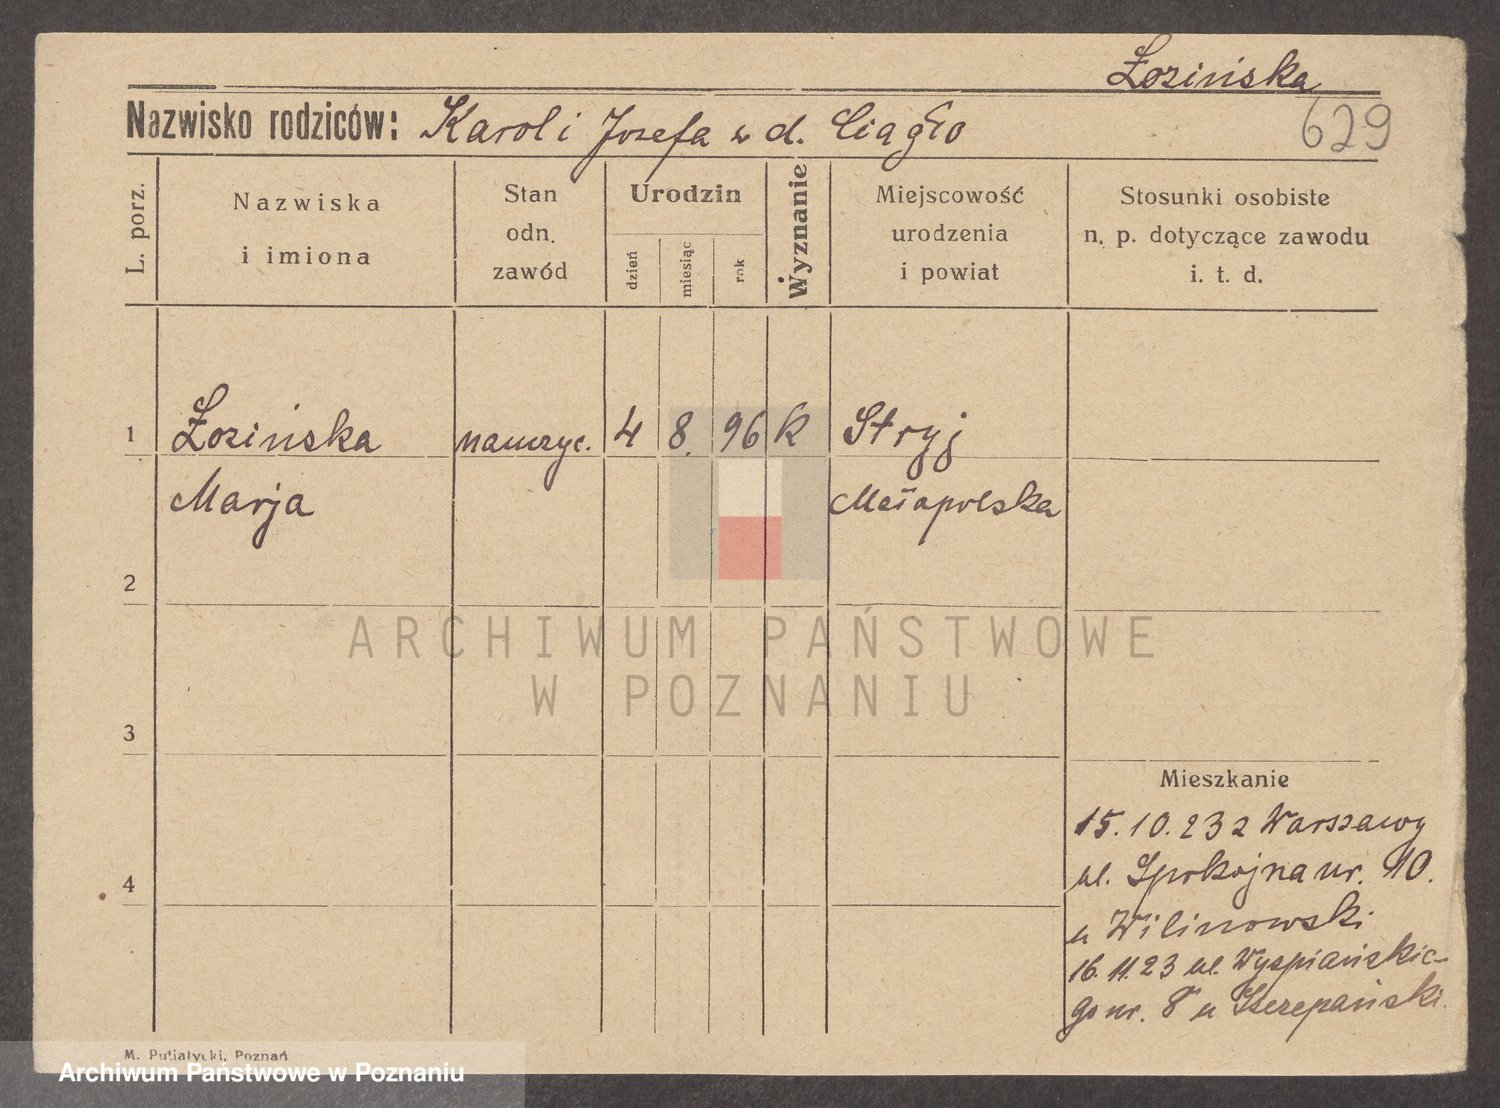 Łozińska
Nazwisko rodziców: Karol i Józefa z d. Ciągło
629
L. porz.
Nazwiska
i imiona
Stan
odn.
zawód
Urodzin
dzień
miesiąc
rok
Wyznanie
Miejscowość
urodzenia
i powiat
Stosunki osobiste
n. p. dotyczące zawodu
i. t. d.
1 Łozińska nauczyc. 4 8. 96 K Stryj
Marja Małopolska
2
3
4
Mieszkanie
15.10.23 z Warszawy
ul. Spokojna nr. 10.
u Wilinowski
16.11.23 ul. Wyspiańskie-
go nr. 8 u Szczepański.
M. Putiatycki, Poznań
ARCHIWUM PAŃSTWOWE
W POZNANIU
Archiwum Państwowe w Poznaniu